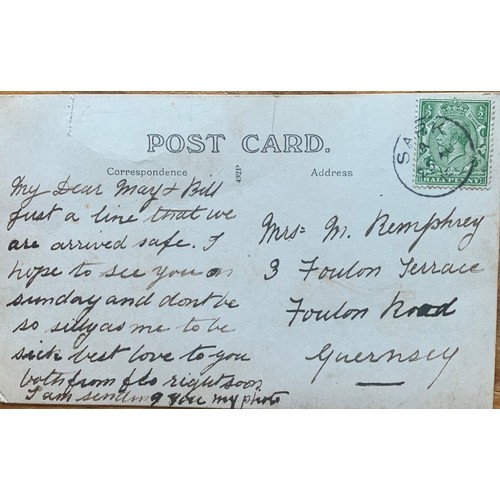 POST CARD.
Correspondence
432P
Address
My Dear May & Bill
Just a line that we
are arrived safe. I
hope to see you on
sunday and dont be
so silly as me to be
sick best love to you
both from flo right soon
I am sending you my photo
Mrs M. Remphrey
3 Foulon Terrace
Foulon Road
Guernsey
SA